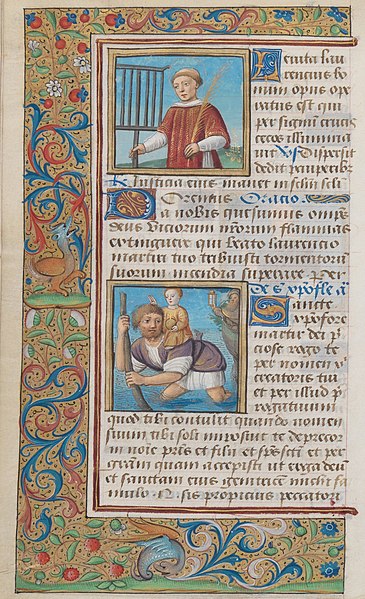 Levita lau
rencius bo
num opus ope
ratus est qui
per signum crucis
cecos illumina
vit Vs Dispersit
dedit pauperibus
R Iusticia eius manet in sclm scli
Oratio
Da nobis quesumus omps
deus viciorum nrorum flammas
extinguere qui beato laurencio
martiri tuo tribuisti tormentorum
suorum incendia superare Per
De S xpofle an
Sancte
xpofore
martir dei p
ciose rogo te
per nomen x
creatoris tui
et per illud p
rogativum
quod tibi contulit quando nomen
suum tibi soli imposuit te deprecor
in noie pris et filii et spsscti et per
gram quam accepisti ut erga deu
et sanctam eius genitrice michi fa
mulo N. sis propicius peccatori